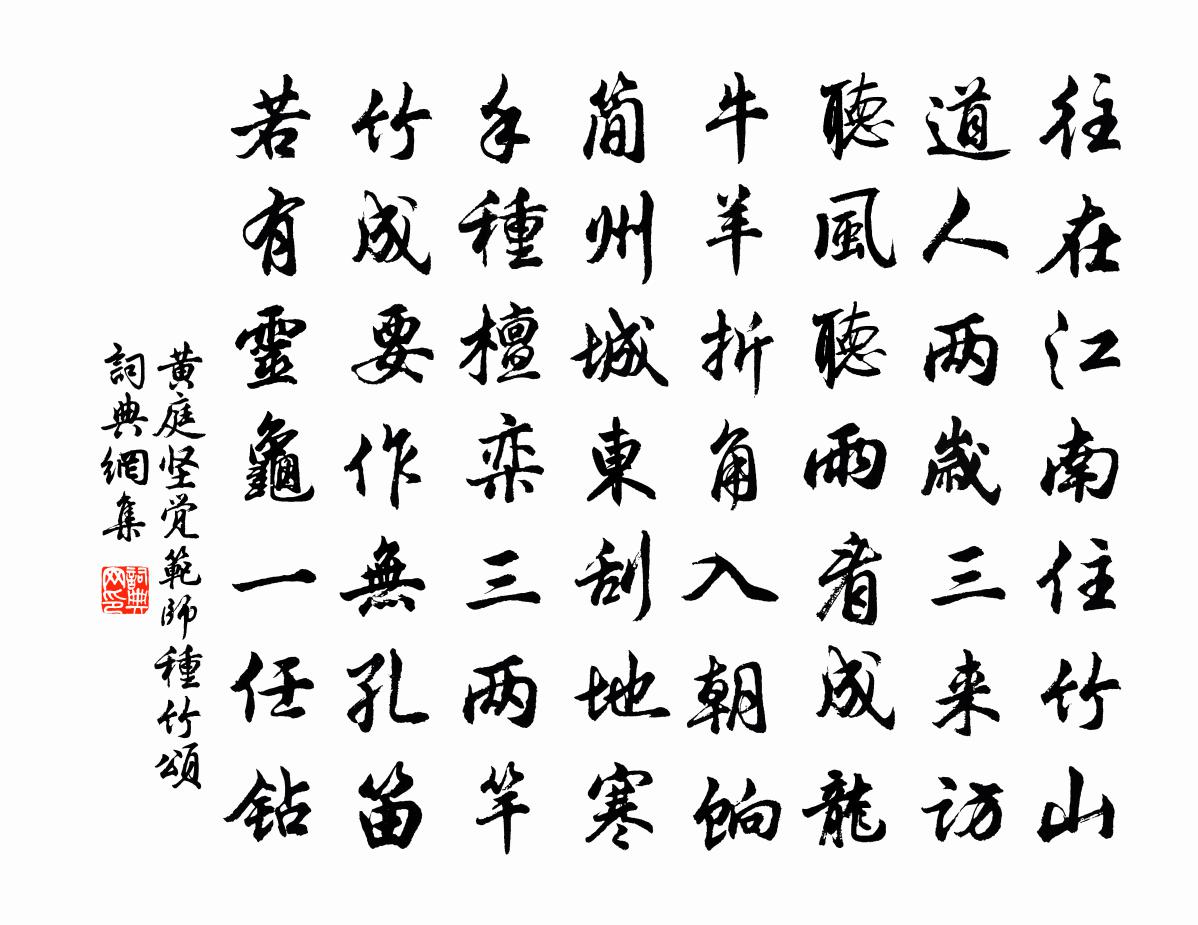 往在江南住竹山
道人两歲三来访
聽風聽雨看成龍
牛羊折角入朝餉
简州城東刮地寒
手種檀栾三两竿
竹成要作無孔笛
若有靈龜一任钻
黄庭坚觉範師種竹頌
詞典網集
詞典网印